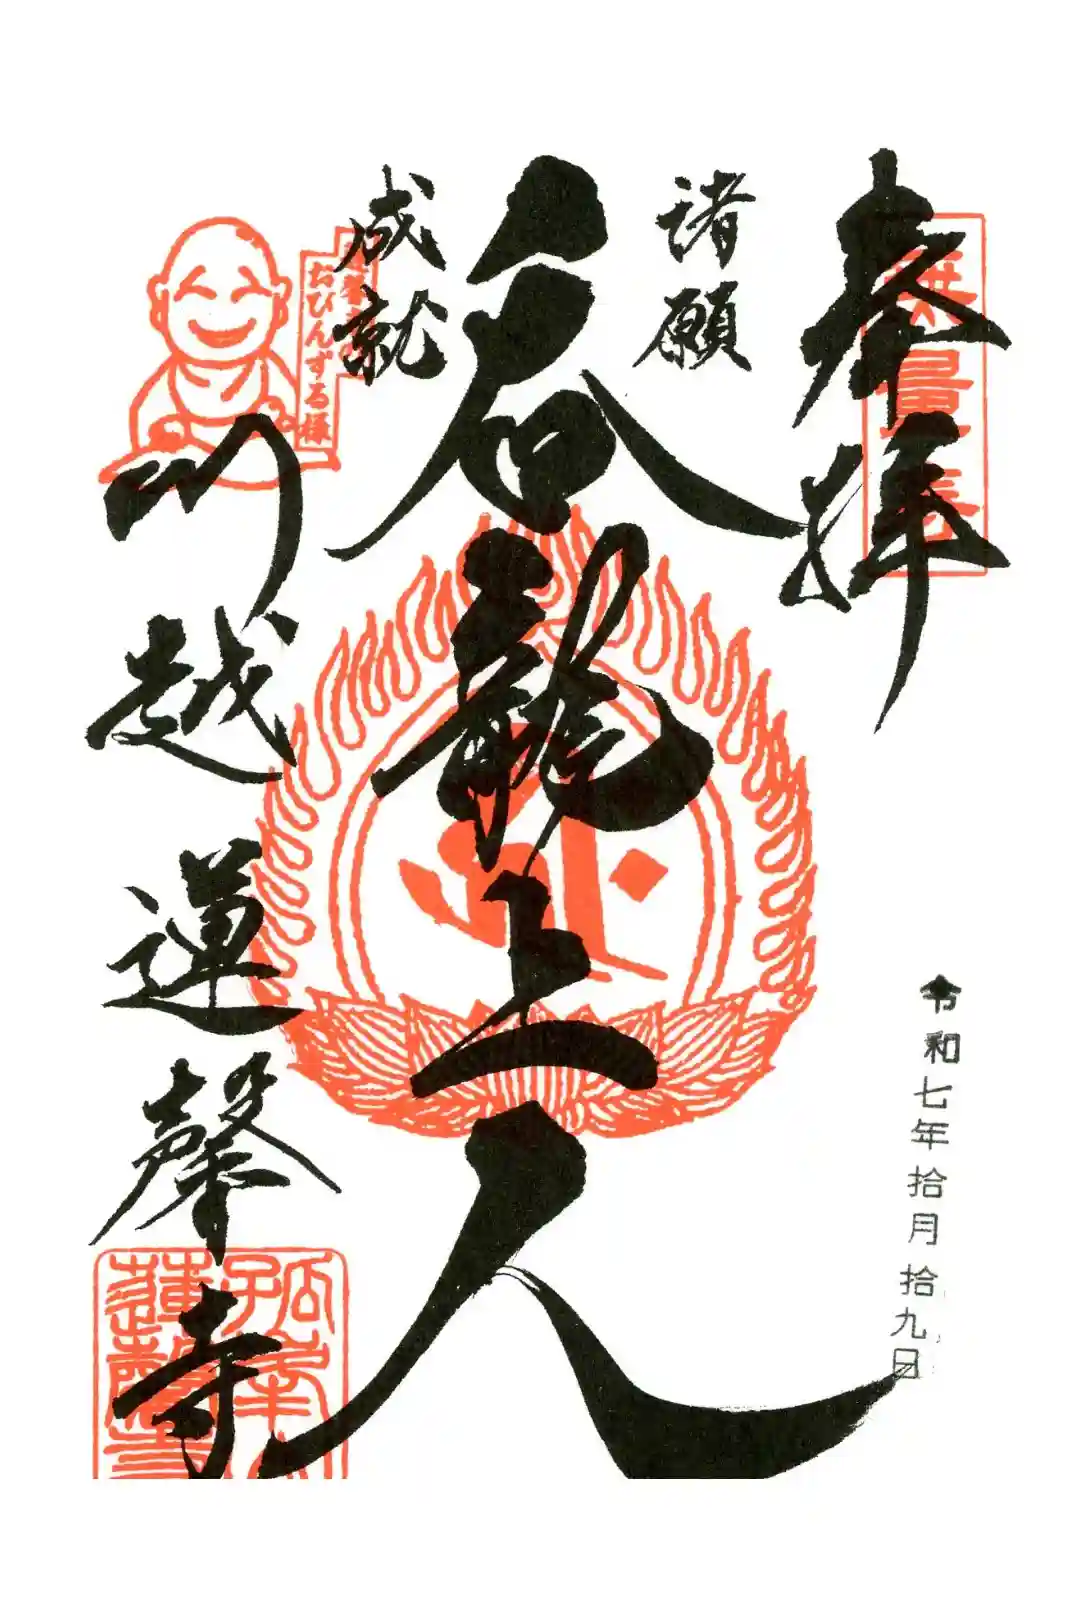 奉拝
無量寿
令和七年拾月拾九日
諸願
呑龍上人
成就
おびんずる様
川越 蓮馨寺
孤峯山
蓮馨寺